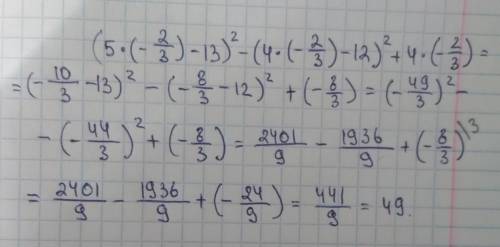 (5·(-2/3)-13)² - (4·(-2/3)-12)² + 4·(-2/3) =
= (-10/3 -13)² - (-8/3 -12)² + (-8/3) = (-49/3)² -
- (-44/3)² + (-8/3) = 2401/9 - 1936/9 + (-8/3)⁾³
= 2401/9 - 1936/9 + (-24/9) = 441/9 = 49.